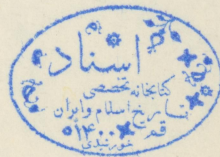 اسناد
کتابخانه تخصصی
تاریخ اسلام و ایران
قم ۱۴۰۰
خورشیدی